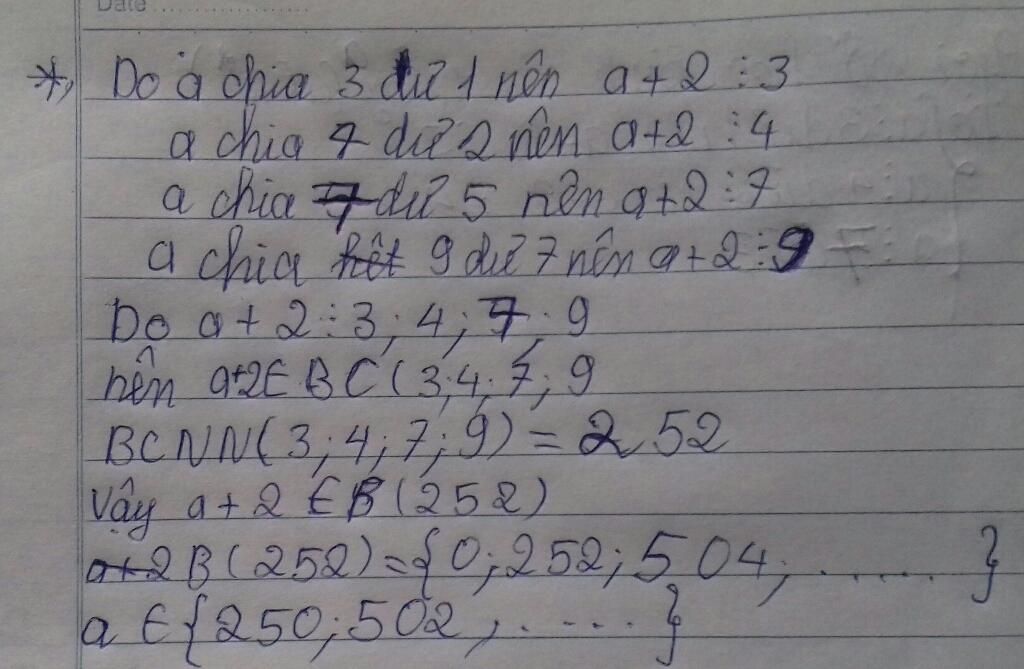 Date
*, Do a chia 3 dư 1 nên a + 2 ⋮ 3
a chia 4 dư 2 nên a+2 ⋮ 4
a chia 7 dư 5 nên a+2 ⋮ 7
a chia hết 9 dư 7 nên a+2 ⋮ 9
Do a + 2 ⋮ 3; 4; 7; 9
nên a+2 ∈ BC(3;4;7;9
BCNN(3;4;7;9) = 252
Vậy a+2 ∈ B(252)
a+2 B(252)={0;252;504;...... }
a ∈ {250;502,.....}